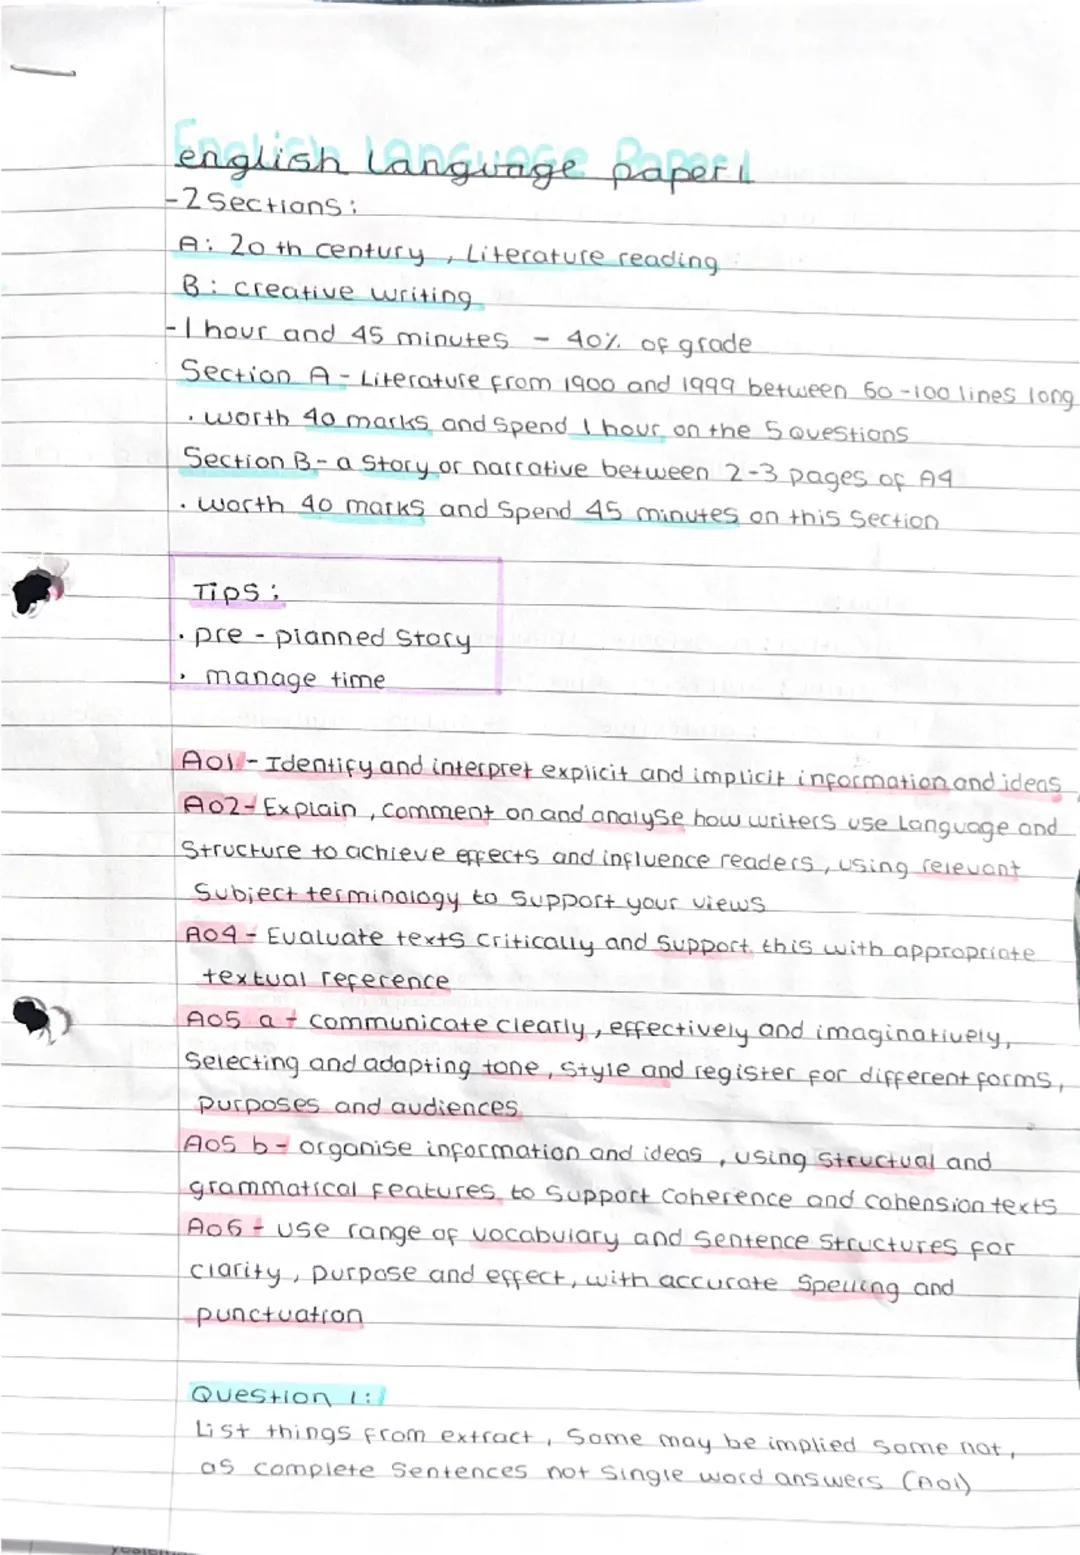 English Language Paper 1
english language paper 1
-2 Sections:
A: 20th century, Literature reading
B: creative writing
-1 hour and 45 minutes - 40% of grade
Section A - Literature from 1900 and 1999 between 60-100 lines long
· worth 40 marks and spend 1 hour on the 5 Questions
Section B - a story or narrative between 2-3 pages of A4
· worth 40 marks and spend 45 minutes on this section
Tips:
· pre-planned story
· manage time
AO1 - Identify and interpret explicit and implicit information and ideas
AO2 - Explain, comment on and analyse how writers use language and
structure to achieve effects and influence readers, using relevant
subject terminology to support your views
AO4 - Evaluate texts critically and support this with appropriate
textual reference
AO5 a - communicate clearly, effectively and imaginatively,
Selecting and adapting tone, style and register for different forms,
purposes and audiences
AO5 b - organise information and ideas, using structual and
grammatical features to support coherence and cohension texts
AO6 - use range of vocabulary and sentence structures for
clarity, purpose and effect, with accurate spelling and
punctuation
Question 1:
List things from extract, some may be implied some not,
as complete sentences not single word answers (AO1)